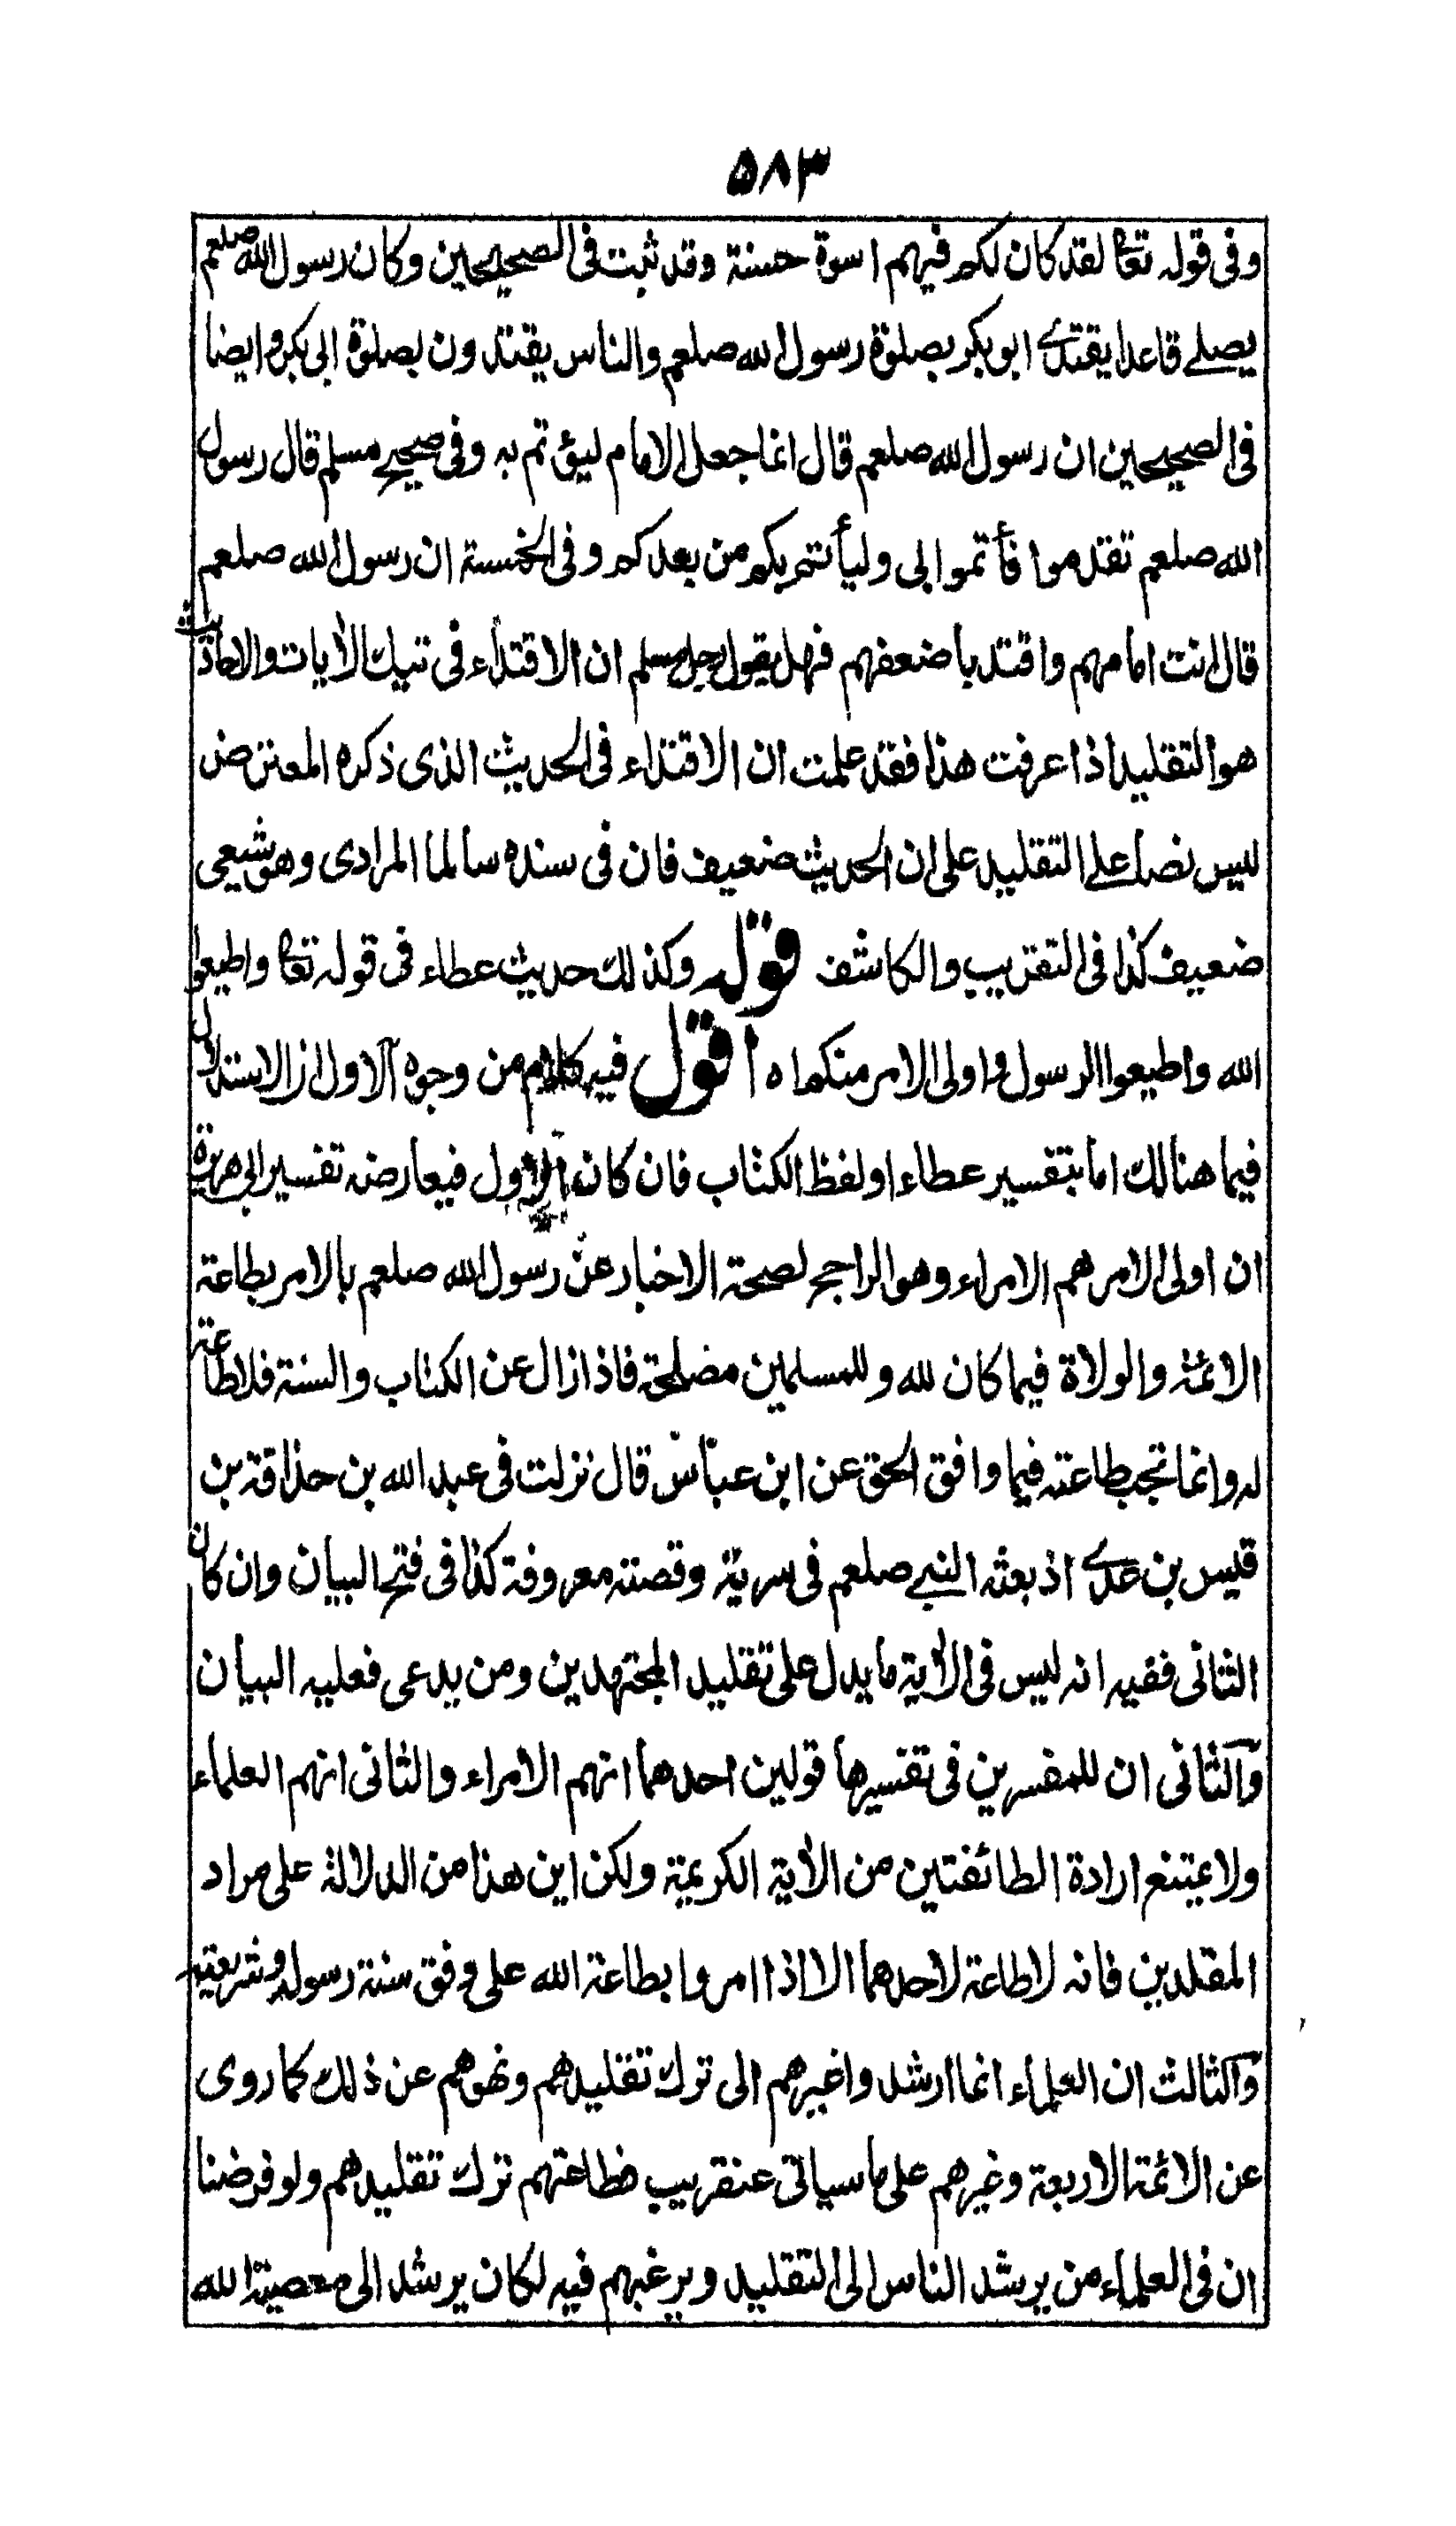 ٥٨٣
وفى قوله تعالى لقد كان لكم فيهم اسوة حسنة وقد ثبت فى الصحيحين وكان رسول الله صلعم
يصلے قاعدا يقتدے ابوبكر بصلوة رسول الله صلعم والناس يقتدون بصلوة ابى بكر وايضا
فى الصحيحين ان رسول الله صلعم قال انما جعل الامام ليؤتم به وفى صحيح مسلم قال رسول
الله صلعم تقدموا فأتموا بى وليأتم بكم من بعدكم وفى الخمسة ان رسول الله صلعم
قال انت امامهم واقتد بأضعفهم فهل يقول رجل مسلم ان الاقتداء فى تيك الأيات والاحاديث
هو التقليد اذا عرفت هذا فقد علمت ان الاقتداء فى الحديث الذى ذكره المعترض
ليس نصا على التقليد على ان الحديث ضعيف فان فى سنده سالما المرادى وهو شيعى
ضعيف كذا فى التقريب والكاشف قوله وكذلك حديث عطاء فى قوله تعالى واطيعوا
الله واطيعوا الرسول واولى الامر منكم اه اقول فيه كلام من وجوه الاول ان الاستدلال
فيما هنالك اما بتفسير عطاء او لفظ الكتاب فان كان الاول فيعارضه تفسير ابى هريرة
ان اولى الامر هم الامراء وهو الراجح لصحة الاخبار عن رسول الله صلعم بالامر بطاعة
الائمة والولاة فيما كان لله وللمسلمين مصلحة فاذا زال عن الكتاب والسنة فلاطاعة
له وانما تجب طاعته فيما وافق الحق عن ابن عباس قال نزلت فى عبد الله بن حذافة بن
قيس بن عدے اذ بعثه النبے صلعم فى سرية وقصته معروفة كذا فى فتح البيان وان كان
الثانى ففيه انه ليس فى الأية ما يدل على تقليد المجتهدين ومن يدعى فعليه البيان
والثانى ان للمفسرين فى تفسيرها قولين احدهما انهم الامراء والثانى انهم العلماء
ولا يمتنع ارادة الطائفتين من الأية الكريمة ولكن اين هذا من الدلالة على مراد
المقلدين فانه لاطاعة لاحدهما الا اذا امروا بطاعة الله على وفق سنة رسوله وشريعته
والثالث ان العلماء انما ارشدوا غيرهم الى ترك تقليدهم ونهوهم عن ذلك كما روى
عن الائمة الاربعة وغيرهم على ما سياتى عنقريب فطاعتهم ترك تقليدهم ولو فرضنا
ان فى العلماء من يرشد الناس الى التقليد ويرغبهم فيه لكان يرشد الى معصية الله